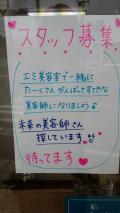 スタッフ募集
エミ美容室で一緒に
たーくさんがんばってすてきな
美容師になりましょう♪
未来の美容師さん
探しています
待ってます